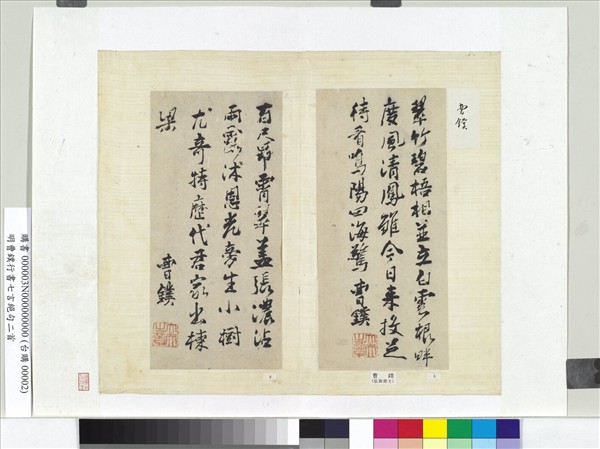 曹鏷
翠竹碧梧相並立白雲根畔
度風清鳳雛今日來投足
待看鳴陽四海驚 曹鏷
百尺昂霄翠蓋張濃沾
雨露沐恩光旁生小樹
尤奇特歷代君家出棟
梁
曹鏷
曹鏷
購書 000003N000000000 (台購 00002)
明曹鏷行書七言絕句二首